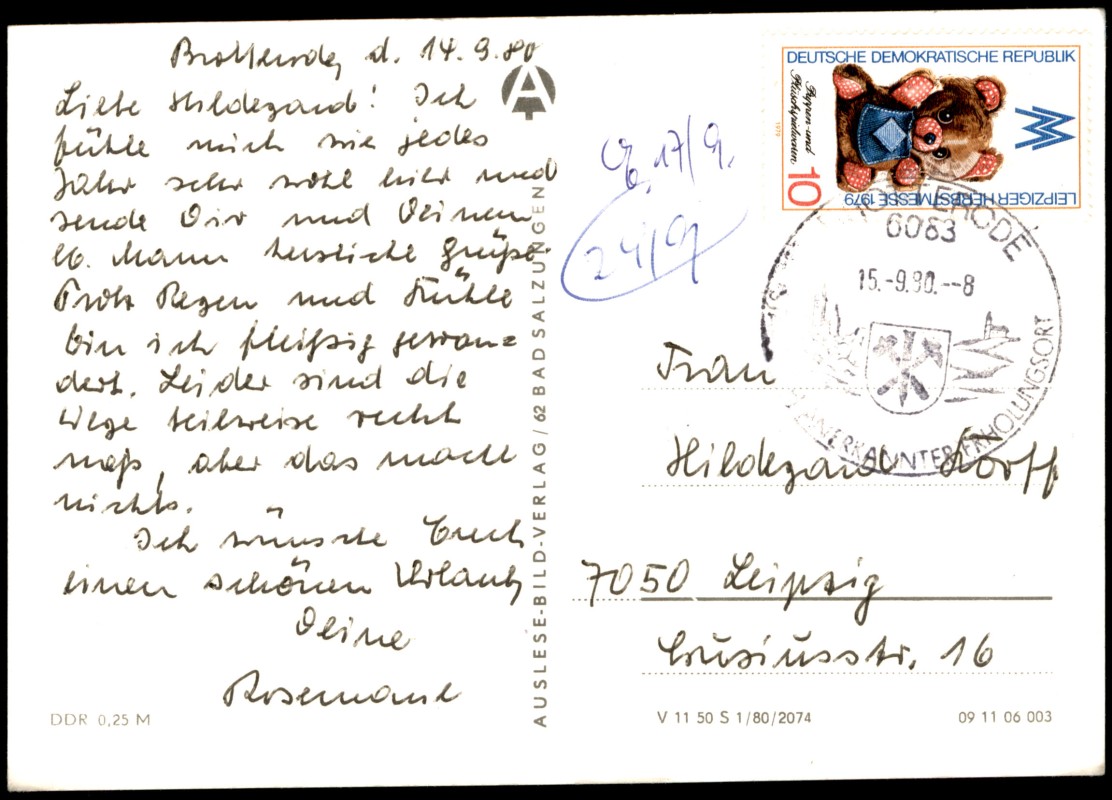 Brotterode, d. 14.9.80
Liebe Hildegard! Ich
fühle mich wie jedes
Jahr sehr wohl hier und
sende Dir und Deinem
lb. Mann herzliche Grüße.
Trotz Regen und Kühle
bin ich fleißig gewan=
dert. Leider sind die
Wege teilweise recht
naß, aber das macht
nichts.
Ich wünsche Euch
einen schönen Urlaub
Deine
Rosemarie
DDR 0,25 M
A
AUSLESE-BILD-VERLAG / 62 BAD SALZUNGEN
17/9.
24/9
DEUTSCHE DEMOKRATISCHE REPUBLIK
Puppen- und
Plüschspielwaren
1979
10
MM
LEIPZIGER HERBSTMESSE 1979
BROTTERODE
6083
15.-9.80.--8
ANERKANNTER ERHOLUNGSORT
Frau
Hildegard Korff
7050 Leipzig
Lusiusstr. 16
V 11 50 S 1/80/2074
09 11 06 003